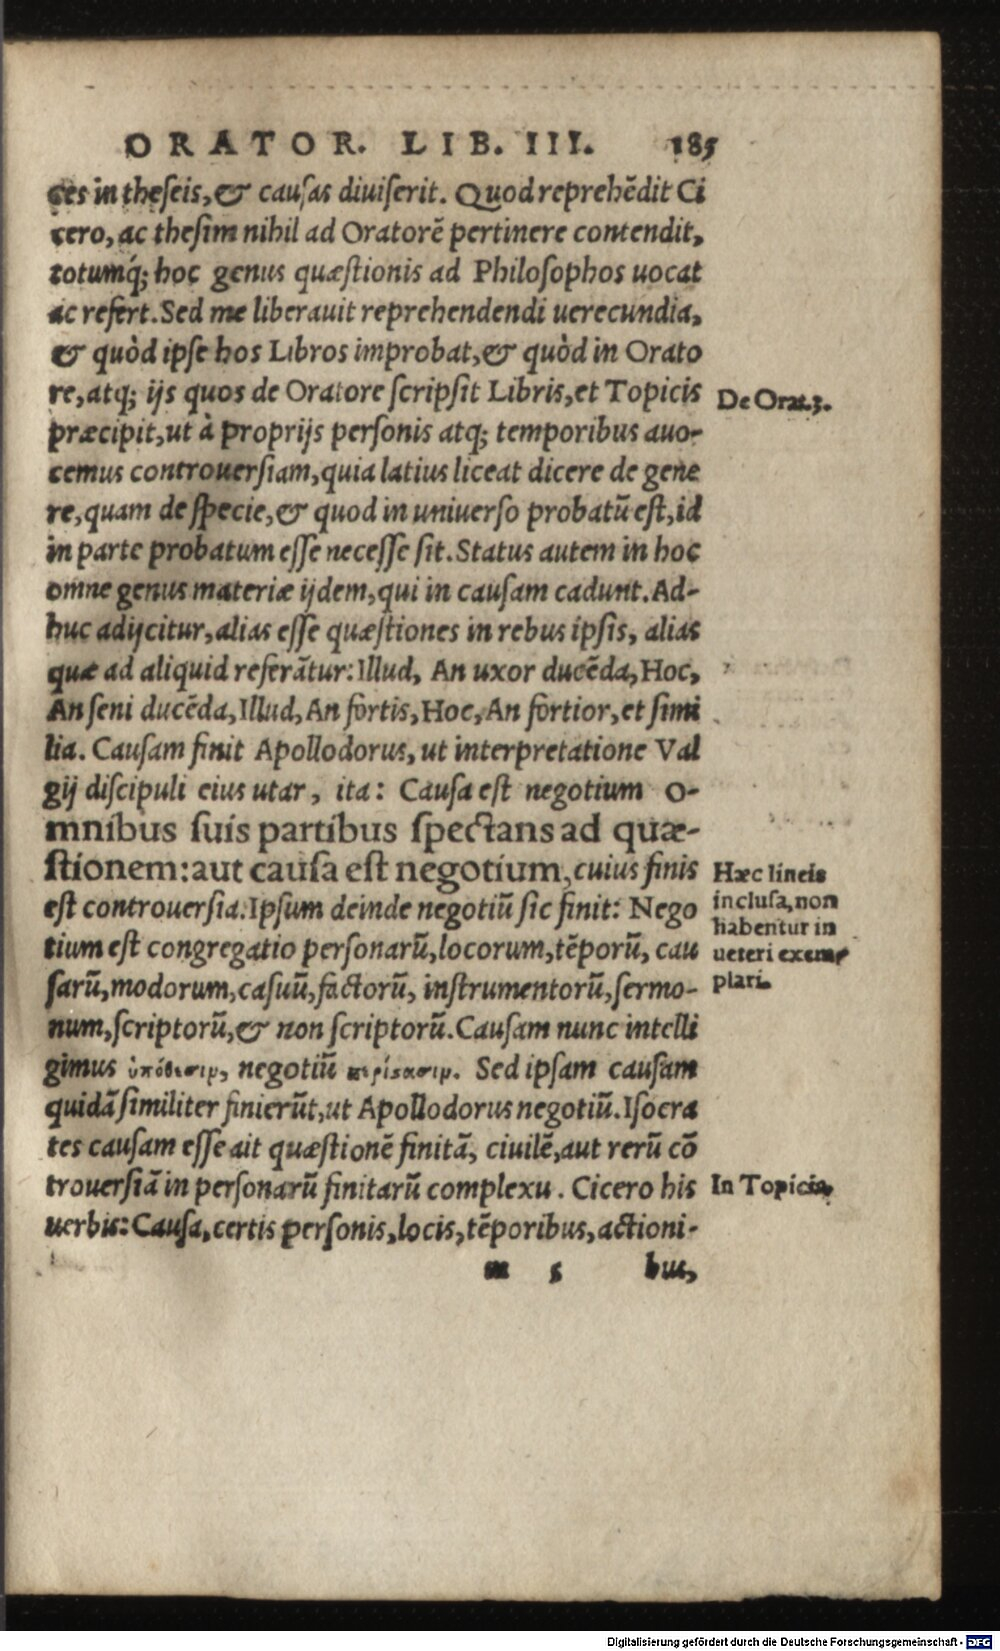 ORATOR. LIB. III. 185
ces in theseis, & causas diuiserit. Quod reprehēdit Ci
cero, ac thesim nihil ad Oratorē pertinere contendit,
totumq́; hoc genus quæstionis ad Philosophos uocat
ac refert. Sed me liberauit reprehendendi uerecundia,
& quòd ipse hos Libros improbat, & quòd in Orato
re, atq; ijs quos de Oratore scripsit Libris, et Topicis
præcipit, ut à proprijs personis atq; temporibus auo-
cemus controuersiam, quia latius liceat dicere de gene
re, quam de specie, & quod in uniuerso probatū est, id
in parte probatum esse necesse sit. Status autem in hoc
omne genus materiæ ijdem, qui in causam cadunt. Ad-
huc adijcitur, alias esse quæstiones in rebus ipsis, alias
quæ ad aliquid referātur: Illud, An uxor ducēda, Hoc,
An seni ducēda, Illud, An fortis, Hoc, An fortior, et simi
lia. Causam finit Apollodorus, ut interpretatione Val
gij discipuli eius utar, ita: Causa est negotium o-
mnibus suis partibus spectans ad quæ-
stionem: aut causa est negotium, cuius finis
est controuersia. Ipsum deinde negotiū sic finit: Nego
tium est congregatio personarū, locorum, tēporū, cau
sarū, modorum, casuū, factorū, instrumentorū, sermo-
num, scriptorū, & non scriptorū. Causam nunc intelli
gimus ὑπόθεσιν, negotiū περίστασιν. Sed ipsam causam
quidā similiter finierūt, ut Apollodorus negotiū. Isocra
tes causam esse ait quæstionē finitā, ciuilē, aut rerū cō
trouersiā in personarū finitarū complexu. Cicero his
uerbis: Causa, certis personis, locis, tēporibus, actioni-
m 5 bus,
De Orat.3.
Hæc lineis
inclusa, non
habentur in
ueteri exem-
plari.
In Topicis.
Digitalisierung gefördert durch die Deutsche Forschungsgemeinschaft - DFG